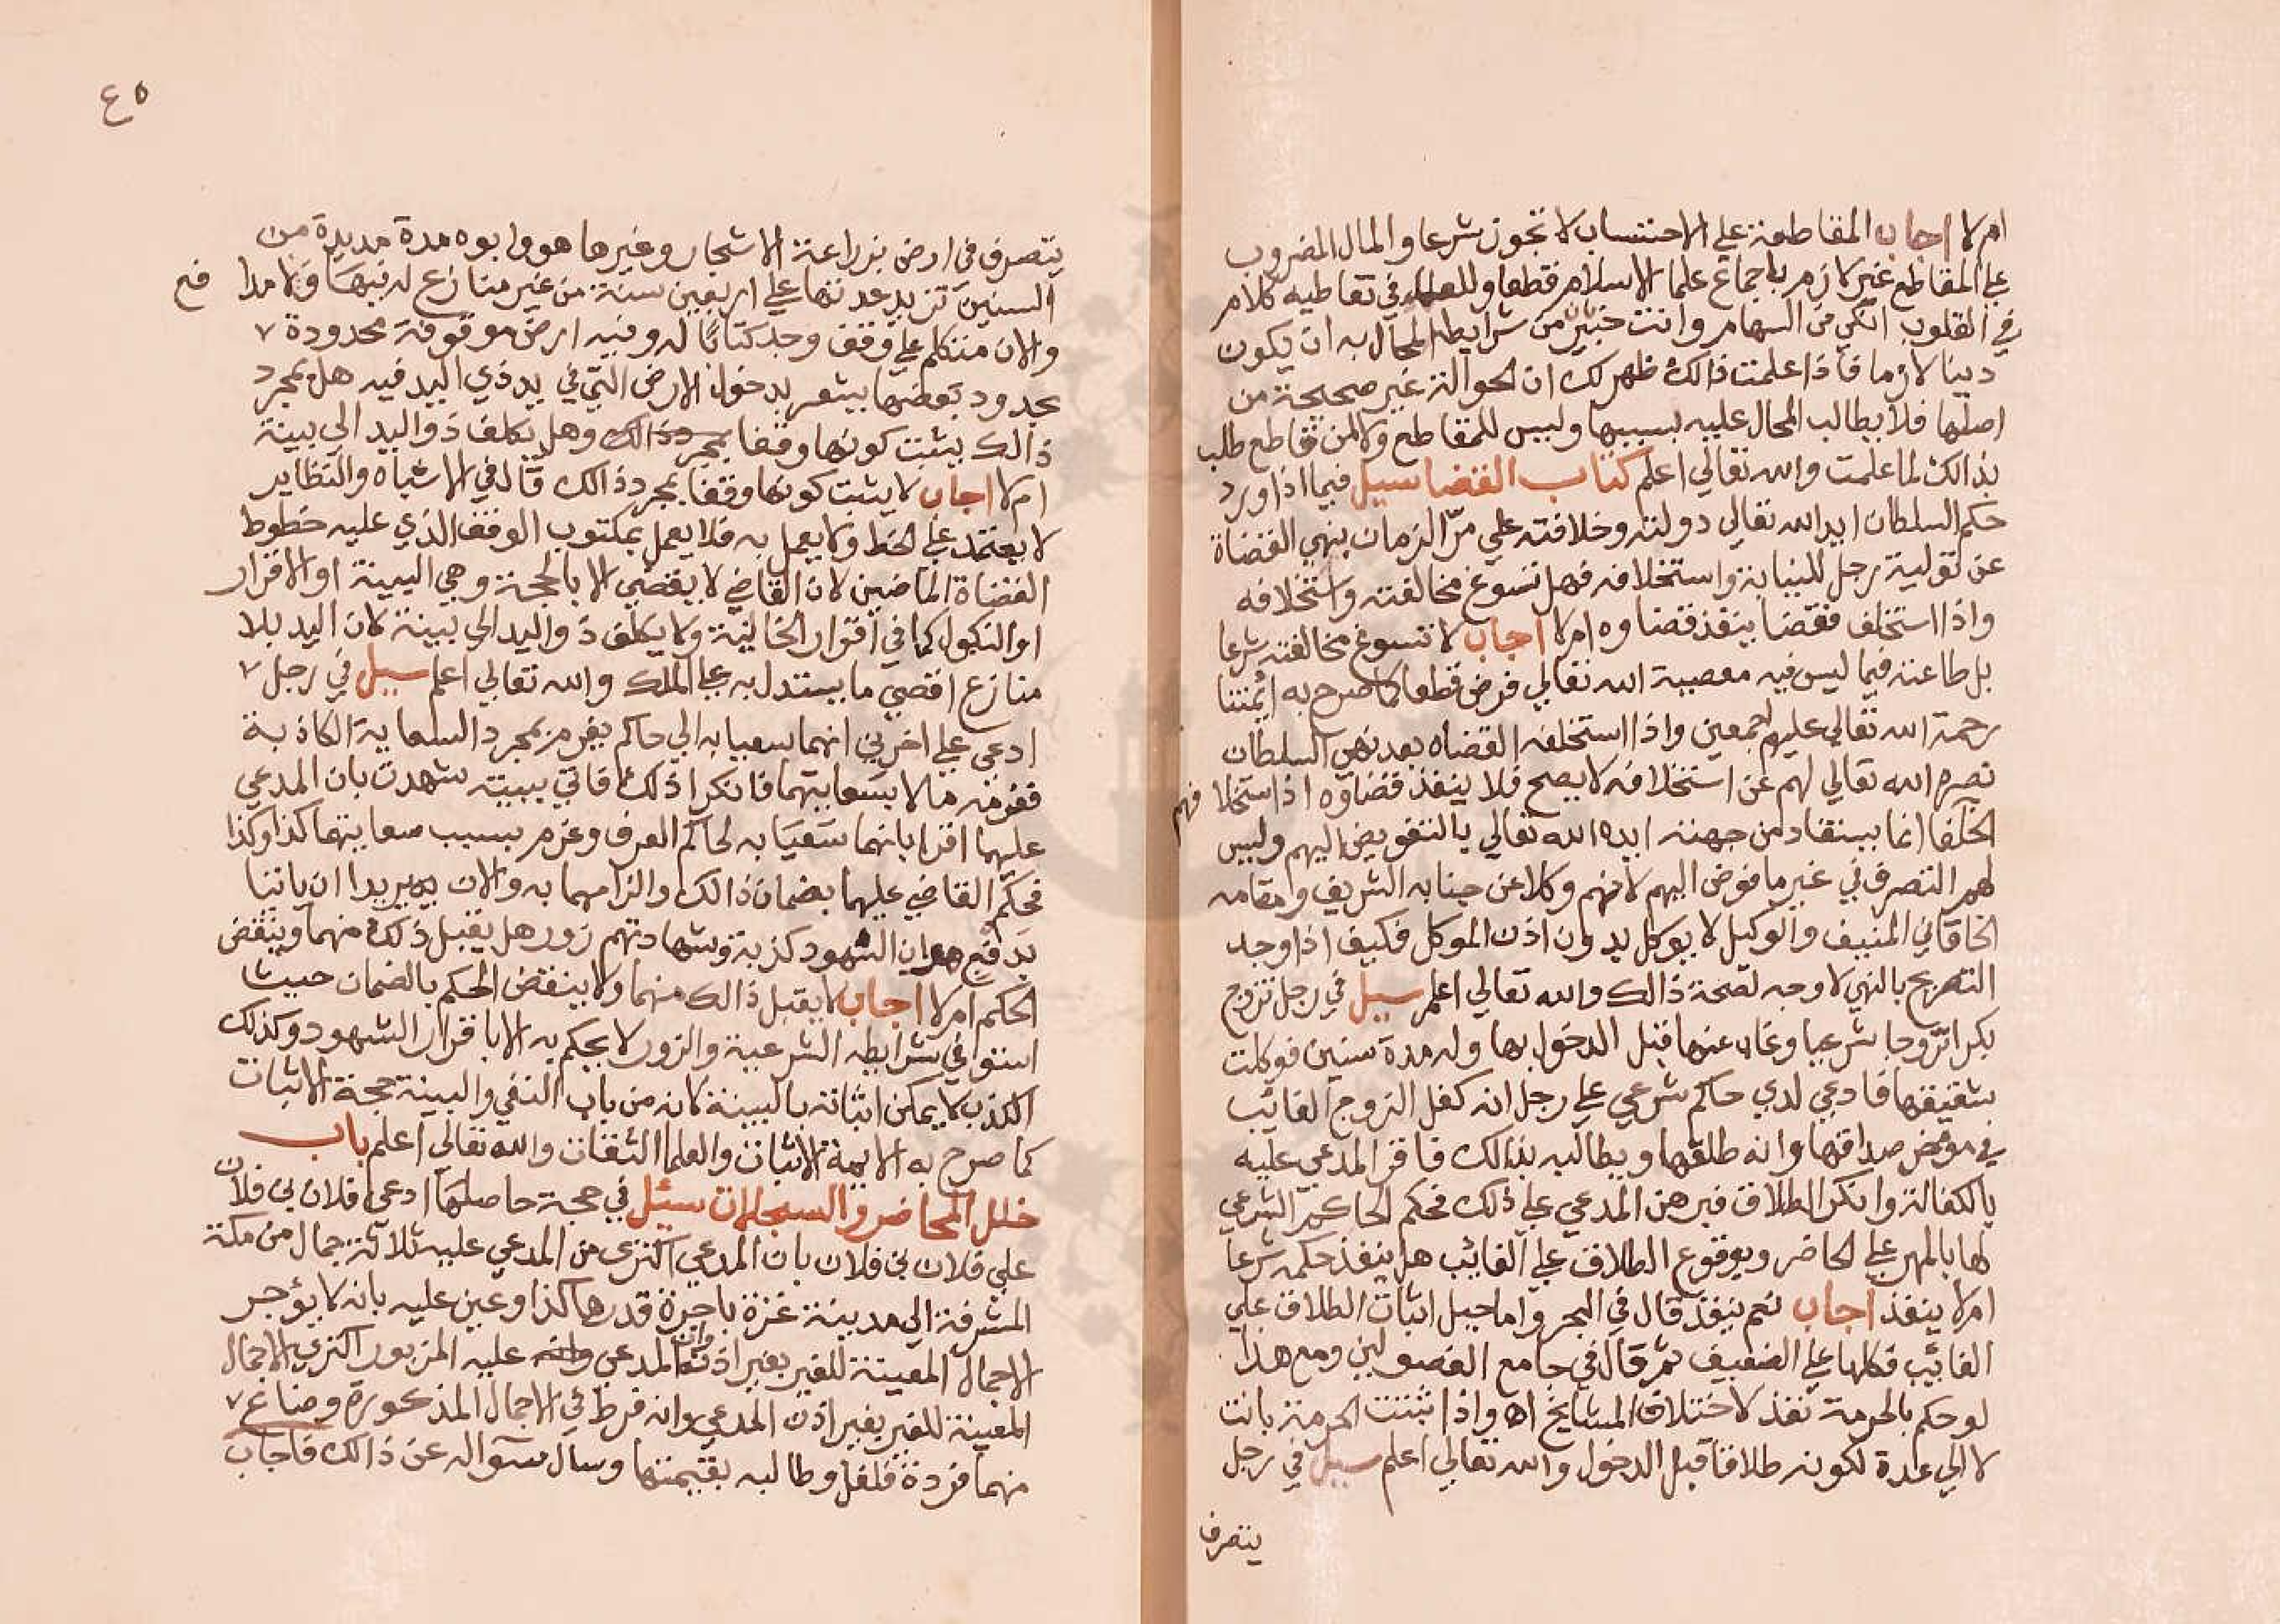 ام لا اجاب المقاطعة علي الاحتساب لا تجوز شرعا والمال المضروب
علي المقاطع غير لازم باجماع علما الاسلام قطعا وللعلماء في تعاطيه كلام
في القلوب انكي من السهام وانت خبير بان من شرايط المحال به ان يكون
دينا لازما فاذا علمت ذالك ظهر لك ان الحوالة غير صحيحة من
اصلها فلا يطالب المحال عليه بسببها وليس للمقاطع ولا لمن قاطع طلب
بذالك لما علمت والله تعالي اعلم كتاب القضا سيل فيما اذا ورد
حكم السلطان ايد الله تعالي دولته وخلافته علي مرّ الزمان بنهي القضاة
عن تولية رجل للنيابة واستخلافه فهل تسوغ مخالفته واستخلافه
واذا استخلف فقضا ينفذ قضاوه ام لا اجاب لا تسوغ مخالفته شرعا
بل طاعته فيما ليس فيه معصية الله تعالي فرض قطعا كما صرح به ائمتنا
رحمة الله تعالي عليهم اجمعين واذا استخلفه القضاه بعد نهي السلطان
نصره الله تعالي لهم عن استخلافه لا يصح فلا ينفذ قضاؤه اذ استخلا فهم
الخلفا انما يستفاد من جهته ايده الله تعالي بالتفويض اليهم وليس
لهم التصرف في غير ما فوض اليهم لانهم وكلا عن جنابه الشريف ومقامه
الخاقاني المنيف والوكيل لا يوكل بدون اذن الموكل فكيف اذا وجد
التصريح بالنهي لا وجه لصحة ذالك والله تعالي اعلم سيل في رجل تزوج
بكرا تزوجا شرعيا وغاب عنها قبل الدخول بها وله مدة سنين فوكلت
شقيقها فادعي لدي حاكم شرعي علي رجل انه كفل الزوج الغائب
في موخر صداقها وانه طلقها ويطالبه بذالك فاقر المدعي عليه
بالكفالة وانكر الطلاق فبرهن المدعي علي ذلك فحكم الحاكم الشرعي
لها بالمهر علي الحاضر وبوقوع الطلاق علي الغائب هل ينفذ حكمه شرعا
ام لا ينفذ اجاب نعم ينفذ قال في البحر واما حيل اثبات الطلاق علي
الغائب فكلها علي الضعيف ثم قال في جامع الفصولين ومع هذا
لو حكم بالحرمة نفذ لاختلاف المشايخ اه واذا ثبتت الحرمة بانت
لا الي عدة لكونه طلاقا قبل الدخول والله تعالي اعلم سيل في رجل
يتصرف
٤٥
يتصرف في ارض بزراعة الاشجار وغيرها هو وابوه مدة مديدة من
السنين تزيد عدتها علي اربعين سنة من غير منازع له فيها ولا مدا فع
والان متكلم علي وقف وجد كتابًا له وفيه ارض موقوفة محدودة
بحدود بعضها يشعر بدخول الارض التي في يد ذي اليد فيه هل بمجرد
ذالك يثبت كونها وقفا بمجرد ذالك وهل يكلف ذو اليد الي بينة
ام لا اجاب لا يثبت كونها وقفا بمجرد ذالك قال في الاشباه والنظاير
لا يعتمد علي الخط ولا يعمل به فلا يعمل بمكتوب الوقف الذي عليه خطوط
القضاة الماضين لان القاضي لا يقضي الا بالحجة وهي البينة او الاقرار
او النكول كما في اقرار الخانية ولا يكلف ذو اليد الي بينة لان اليد بلا
منازع اقصي ما يستدل به علي الملك والله تعالي اعلم سيل في رجل
ادعي علي اخرين انهما سعيا به الي حاكم يغرم بمجرد السعاية الكاذبة
فغرمه مالا بسعايتهما فانكرا ذلك فاتي ببينة شهدت بان المدعي
عليهما اقرا بانهما سَعيَا به لحاكم العرف وغرم بسبب سعايتهما كذا وكذا
فحكم القاضي عليهما بضمان ذالك والزامهما به والان يريدا ان ياتيا
بدفع هو ان الشهود كذبة وشهادتهم زور هل يقبل ذلك منهما وينقض
الحكم ام لا اجاب لا يقبل ذالك منهما ولا ينقض الحكم بالضمان حيث
استوافي شرايطه الشرعية والزور لا يحكم به الا باقرار الشهود وكذلك
الكذب لا يمكن اثباته بالبينة لانه من باب النفي والبينة حجة الاثبات
كما صرح به الايمة الاثبات والعلما الثقات والله تعالي اعلم باب
خلل المحاضر والسجلات سئل في حجة حاصلها ادعي فلان بن فلان
علي فلان بن فلان بان المدعي اكتري من المدعي عليه ثلاثة جمال من مكة
المشرفة الي مدينة غزة باجرة قدرها كذا وعين عليه بانه لا يؤجر
الاجمال المعينة للغير بغير اذن المدعي وان عليه المزبور اكتري الاجمال
المعينة للغير بغير اذن المدعي وانه فرط في الاجمال المذكورة وضاع
منهما فردة فلفل وطالبه بقيمتها وسال سواله عن ذالك فاجاب